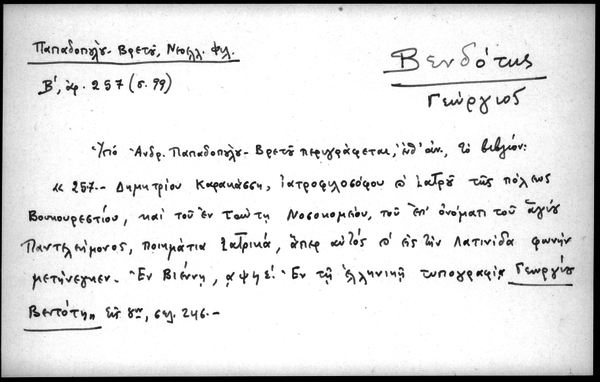 Παπαδοπούλου - Βρετοῦ, Νεοελλ. Φιλ.
Β', ἀρ. 257 (σ. 99)
Βενδότης
Γεώργιος
Ὑπό Ἀνδρ. Παπαδοπούλου - Βρετοῦ περιγράφεται, ἐνθ' ἀν., τό βιβλίον:
« 257.- Δημητρίου Καρακάσση, ἰατροφιλοσόφου καί ἰατροῦ τῆς πόλεως
Βουκουρεστίου, καί τοῦ ἐν ταύτῃ Νοσοκομείου, τοῦ ἐπ' ὀνόματι τοῦ ἁγίου
Παντελεήμονος, ποιημάτια ἰατρικά, ἅπερ αὐτός καί εἰς τήν Λατινίδα φωνήν
μετήνεγκεν. Ἐν Βιέννῃ, ͵αψϟε΄. Ἐν τῇ ἑλληνικῇ τυπογραφίᾳ Γεωργίου
Βεντότη „ Εἰς 8ον, σελ. 246.-